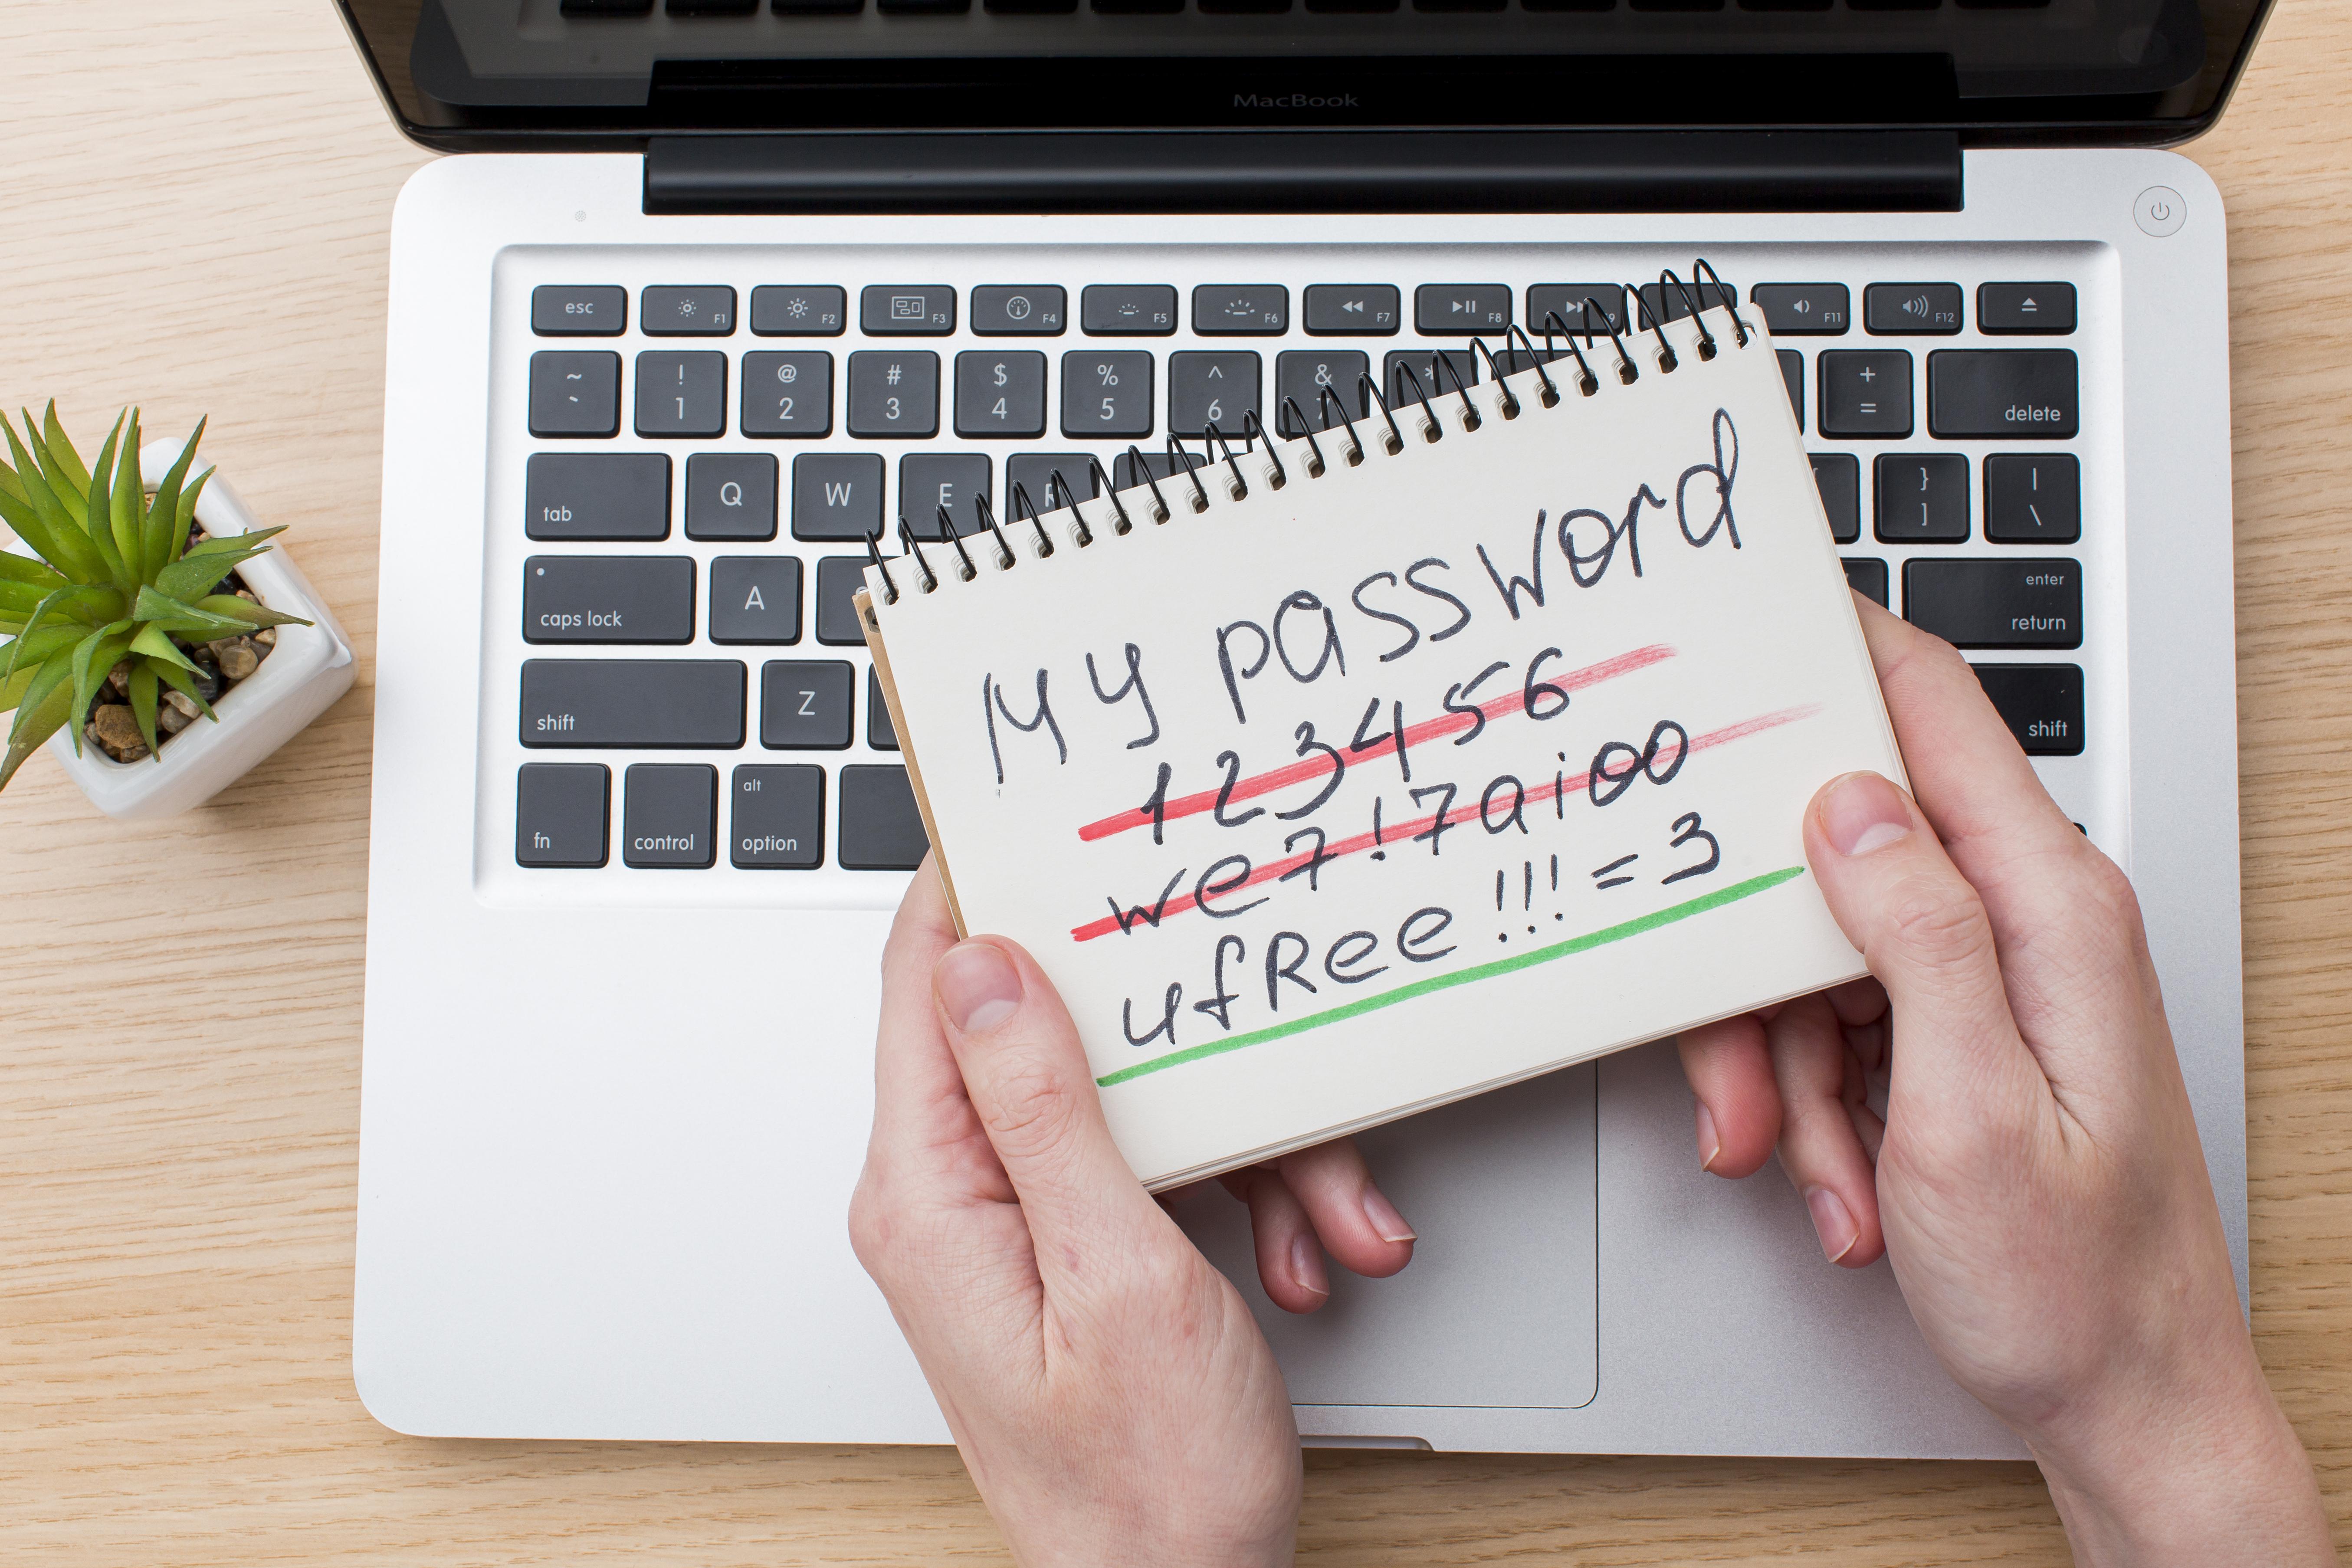 MacBook
esc F1 F2 F3 F4 F5 F6 F7 F8 F11 F12
~ ! @ # $ % ^ & + delete
` 1 2 3 4 5 6 =
tab Q W E R } |
] \
caps lock A enter
return
shift Z shift
fn control alt
option
My password
123456
we7!7aioo
ufRee!!!=3